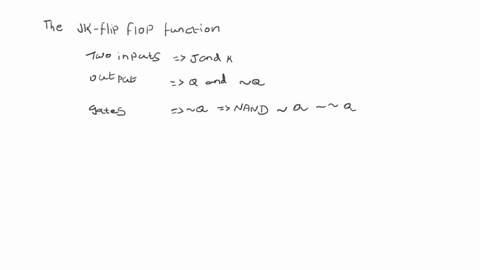 The JK-flip flop function
Two inputs => J and K
output => Q and ~Q
gates => ~Q => NAND ~ Q ~~ Q